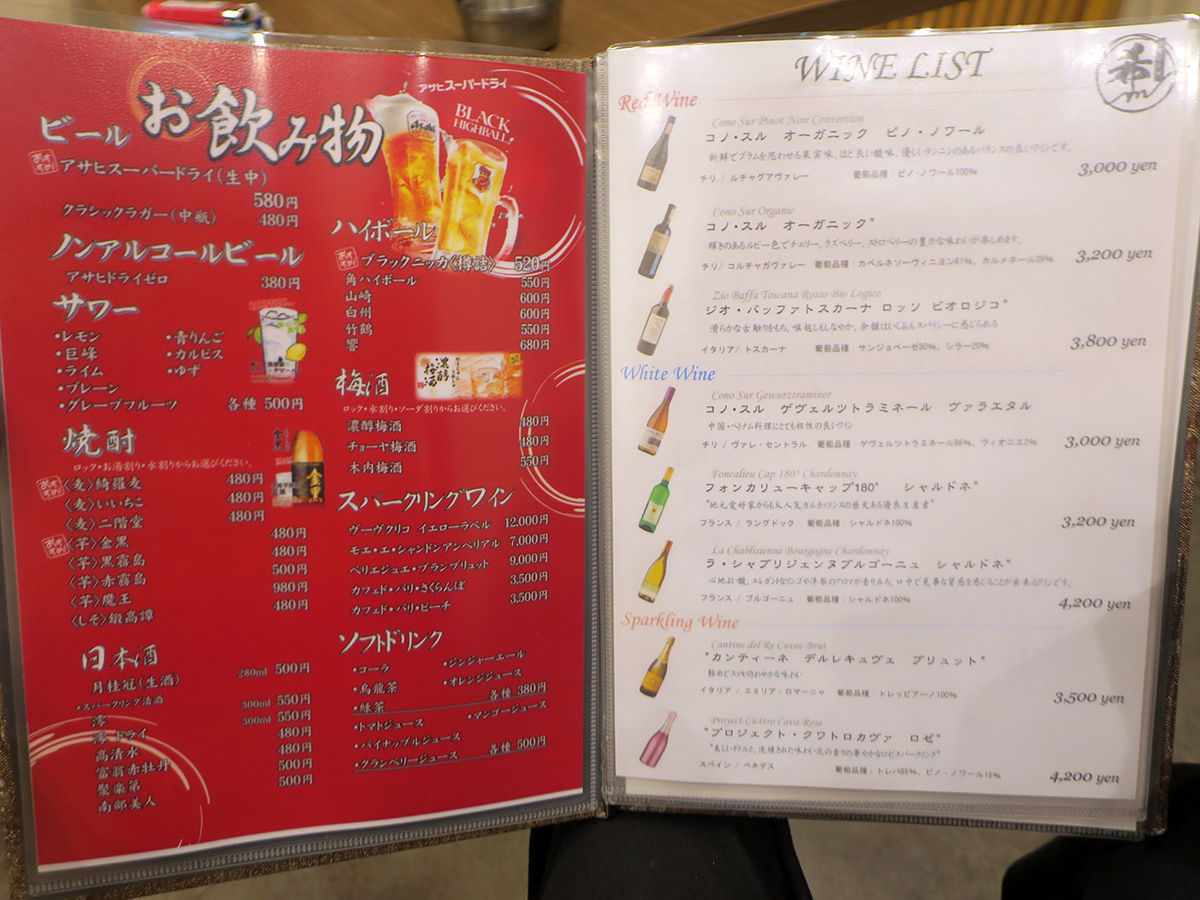 お飲み物
アサヒスーパードライ
BLACK HIGHBALL
Asahi
ビール
おすすめ
アサヒスーパードライ(生中)
580円
クラシックラガー(中瓶) 480円
ノンアルコールビール
アサヒドライゼロ 380円
サワー
・レモン ・青りんご
・巨峰 ・カルピス
・ライム ・ゆず
・プレーン
・グレープフルーツ 各種 500円
焼酎
ロック・お湯割り・水割りからお選びください。
おすすめ
〈麦〉綺羅麦 480円
〈麦〉いいちこ 480円
〈麦〉二階堂 480円
おすすめ
〈芋〉金黒 480円
〈芋〉黒霧島 480円
〈芋〉赤霧島 500円
〈芋〉魔王 980円
〈しそ〉鍛高譚 480円
金黒
日本酒
月桂冠(生酒) 280ml 500円
・スパークリング清酒
澪 300ml 550円
澪 ドライ 300ml 550円
高清水 480円
富翁赤牡丹 480円
聚楽第 500円
南部美人 500円
ハイボール
おすすめ
ブラックニッカ〈樽詰〉 520円
角ハイボール 550円
山崎 600円
白州 600円
竹鶴 550円
響 680円
梅酒
濃醇梅酒
ロック・水割り・ソーダ割りからお選びください。
濃醇梅酒 480円
チョーヤ梅酒 480円
木内梅酒 550円
スパークリングワイン
ヴーヴクリコ イエローラベル 12,000円
モエ・エ・シャンドンアンペリアル 7,000円
ペリエジュエ・ブランブリュット 9,000円
カフェド・パリ・さくらんぼ 3,500円
カフェド・パリ・ピーチ 3,500円
ソフトドリンク
・コーラ ・ジンジャーエール
・烏龍茶 ・オレンジジュース
・緑茶 各種 380円
・トマトジュース ・マンゴージュース
・パイナップルジュース
・クランベリージュース 各種 500円
WINE LIST
希
Red Wine
Cono Sur Pinot Noir Conversion
コノ・スル オーガニック ピノ・ノワール
新鮮でプラムを思わせる果実味、ほど良い酸味、優しいタンニンのあるバランスの良いワインです。
チリ / ルチャグアヴァレー 葡萄品種:ピノ・ノワール100% 3,000 yen
Cono Sur Organic
コノ・スル オーガニック"
輝きのあるルビー色でチェリー、ラズベリー、ストロベリーの豊かな味わいが楽しめます。
チリ/ コルチャガヴァレー 葡萄品種:カベルネソーヴィニヨン61%、カルメネール39% 3,200 yen
Zio Baffa Toscana Rosso Bio Logico
ジオ・バッファトスカーナ ロッソ ビオロジコ"
滑らかな舌触りをもち、喉越しもしなやか、余韻はいくぶんスパイシーに感じられる
イタリア/ トスカーナ 葡萄品種:サンジョベーゼ80%、シラー20% 3,800 yen
White Wine
Cono Sur Gewurztraminer
コノ・スル ゲヴェルツトラミネール ヴァラエタル
中国・ベトナム料理にとても相性の良いワイン
チリ / ヴァレ・セントラル 葡萄品種:ゲヴェルツトラミネール98%、ヴィオニエ2% 3,000 yen
Foncalieu Cap 180° Chardonnay
フォンカリューキャップ180° シャルドネ"
"地元愛好家からも大人気カルカッソンヌの歴史ある優良生産者"
フランス / ラングドック 葡萄品種:シャルドネ100% 3,200 yen
La Chablisienne Bourgogne Chardonnay
ラ・シャブリジェンヌブルゴーニュ シャルドネ"
心地よい酸、エレガントなリンゴや洋梨のアロマが香り立ち、口中で見事な質感を感じることが出来るワインです。
フランス / ブルゴーニュ 葡萄品種:シャルドネ100% 4,200 yen
Sparkling Wine
Cantine del Re Cuvee Brut
"カンティーネ デルレキュヴェ ブリュット"
軽めでスッキリさわやかな味わい
イタリア / エミリア・ロマーニャ 葡萄品種:トレッビアーノ100% 3,500 yen
Proyect Cu4tro Cava Rose
"プロジェクト・クワトロカヴァ ロゼ"
"美しいボトルと、洗練された味わい花の香りの華やかなロゼスパークリング"
スペイン / ペネデス 葡萄品種:トレパ85%、ピノ・ノワール15% 4,200 yen